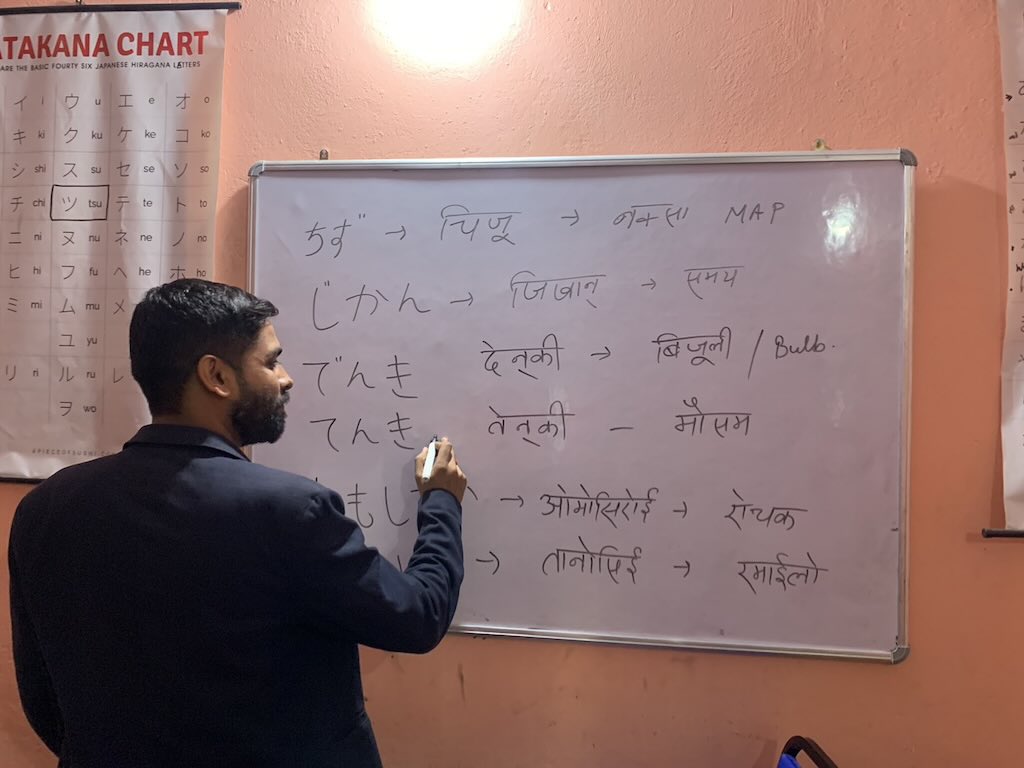 ATAKANA CHART
ARE THE BASIC FOURTY SIX JAPANESE HIRAGANA LETTERS
イ i ウ u エ e オ o
キ ki ク ku ケ ke コ ko
シ shi ス su セ se ソ so
チ chi ツ tsu テ te ト to
ニ ni ヌ nu ネ ne ノ no
ヒ hi フ fu ヘ he ホ ho
ミ mi ム mu メ
ユ yu
リ ri ル ru レ
ヲ wo
ちず → चिजू → नक्सा MAP
じかん → जिखान् → समय
でんき देन्की → बिजूली / Bulb.
てんき तेन्की – मौसम
もし → ओमोसिरोई → रोचक
→ तानोसिई → रमाईलो